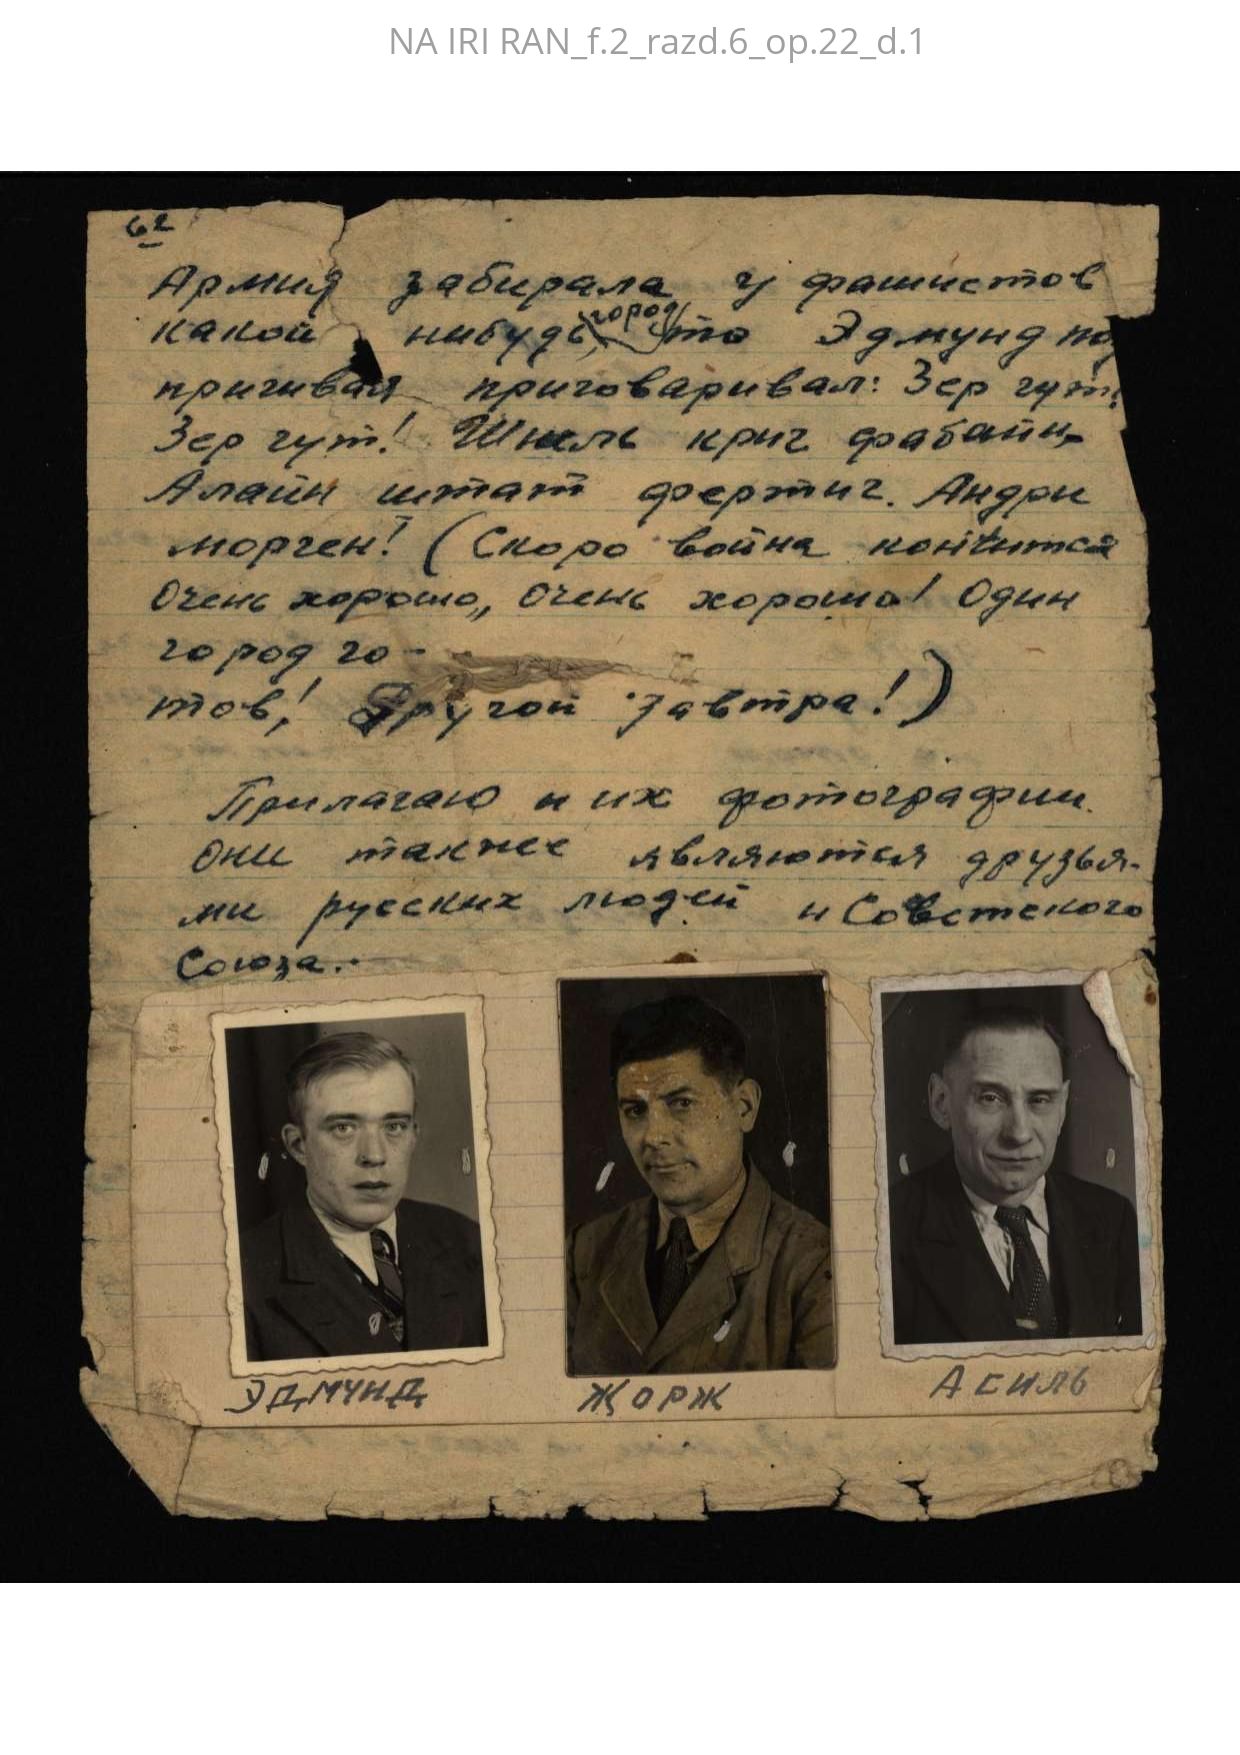 NA IRI RAN_f.2_razd.6_op.22_d.1
62
Армия забирала у фашистов
город
какой нибудь, то Эдмунд под
пригивая приговаривал: Зер гут!
Зер гут! Шнель криг фабайн,
Алайн штат фертиг. Андри
морген! (Скоро война кончится
Очень хорошо, Очень хорошо! Один
город го-
тов! Другой завтра!)
Прилагаю и их фотографии.
Они также являются друзья-
ми русских людей и Советского
Союза.
ЭДМУНД
ЖОРЖ
АСИЛЬ